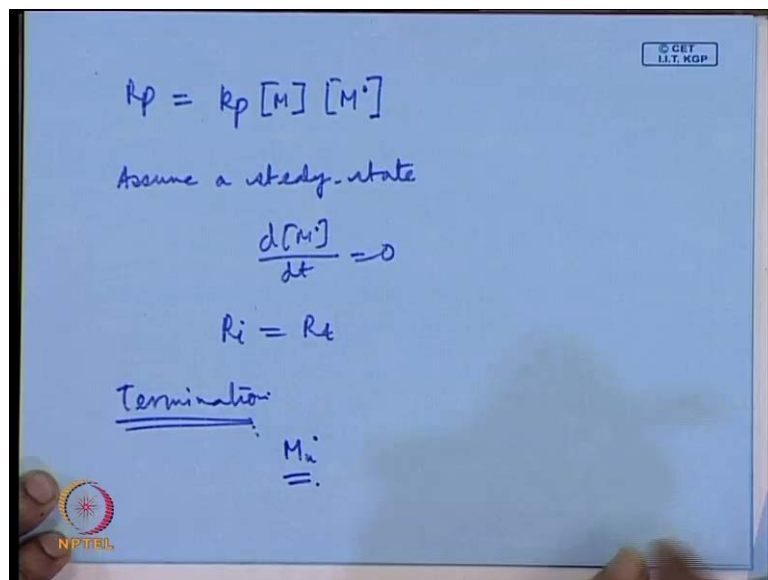 © CET
I.I.T. KGP
Rp = kp [M] [M•]
Assume a stedy-state
d[M•]/dt = 0
Ri = Rt
Termination:
Mn•
NPTEL